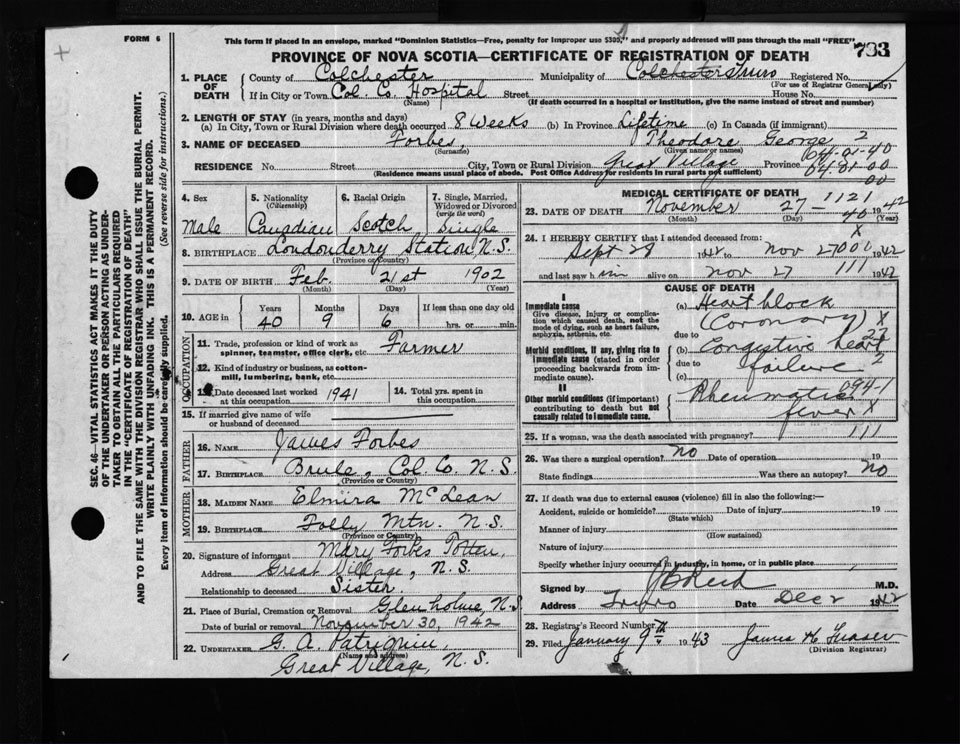 FORM 6
This form if placed in an envelope, marked "Dominion Statistics—Free, penalty for improper use $300," and properly addressed will pass through the mail "FREE"
733
PROVINCE OF NOVA SCOTIA—CERTIFICATE OF REGISTRATION OF DEATH
1. PLACE OF DEATH
County of Colchester Municipality of Colchester Truro Registered No.
(For use of Registrar General only)
If in City or Town Col. Co. Hospital Street House No.
(Name) (If death occurred in a hospital or institution, give the name instead of street and number)
2. LENGTH OF STAY (in years, months and days)
(a) In City, Town or Rural Division where death occurred 8 Weeks (b) In Province Lifetime (c) In Canada (if immigrant)
3. NAME OF DECEASED Forbes Theodore George 2
(Surname) (Given name or names) 04-01-40
RESIDENCE No. Street City, Town or Rural Division Great Village Province 04.01.00
(Residence means usual place of abode. Post Office Address for residents in rural parts not sufficient) 00
4. Sex Male
5. Nationality (Citizenship) Canadian
6. Racial Origin Scotch
7. Single, Married, Widowed or Divorced (write the word) Single
8. BIRTHPLACE Londonderry Station, N.S.
(Province or Country)
9. DATE OF BIRTH Feb. 21st 1902
(Month) (Day) (Year)
10. AGE in Years Months Days If less than one day old
40 9 6 hrs. or min.
OCCUPATION
11. Trade, profession or kind of work as spinner, teamster, office clerk, etc. Farmer
12. Kind of industry or business, as cotton-mill, lumbering, bank, etc.
13. Date deceased last worked at this occupation 1941
14. Total yrs. spent in this occupation
15. If married give name of wife or husband of deceased
FATHER
16. NAME James Forbes
17. BIRTHPLACE Brule, Col. Co. N.S.
(Province or Country)
MOTHER
18. MAIDEN NAME Elmira McLean
19. BIRTHPLACE Folly Mtn. N.S.
(Province or Country)
20. Signature of informant Mary Forbes
Address Great Village, N.S.
Relationship to deceased Sister
21. Place of Burial, Cremation or Removal Glenholme, N.S
Date of burial or removal November 30, 1942
22. UNDERTAKER G. A. Patriquin,
(Name and address)
Great Village, N.S.
MEDICAL CERTIFICATE OF DEATH
23. DATE OF DEATH November 27 — 1121 1942
(Month) (Day) 40 (Year)
24. I HEREBY CERTIFY that I attended deceased from: X
Sept 28 1942 to Nov 27 000 1942
and last saw him alive on Nov 27 111 1942
CAUSE OF DEATH
I
Immediate cause
Give disease, injury or complication which caused death, not the mode of dying, such as heart failure, asphyxia, asthenia, etc.
(a) Heart block
(Coronary) X
due to 27
Morbid conditions, if any, giving rise to immediate cause (stated in order proceeding backwards from immediate cause).
(b) Congestive heart
due to failure 2
(c)
II
Other morbid conditions (if important) contributing to death but not causally related to immediate cause.
Rheumatic 094-1
fever X
25. If a woman, was the death associated with pregnancy? 111
26. Was there a surgical operation? no Date of operation 19
State findings Was there an autopsy? no
27. If death was due to external causes (violence) fill in also the following:—
Accident, suicide or homicide? Date of injury 19
(State which)
Manner of injury
(How sustained)
Nature of injury
Specify whether injury occurred in industry, in home, or in public place
Signed by M.D.
Address Truro Date Dec 2 1942
28. Registrar's Record Number
29. Filed January 9th 1943 James H.
(Division Registrar)
SEC. 46—VITAL STATISTICS ACT MAKES IT THE DUTY
OF THE UNDERTAKER OR PERSON ACTING AS UNDERTAKER TO OBTAIN ALL THE PARTICULARS REQUIRED
IN THE "CERTIFICATE OF REGISTRATION OF DEATH"
AND TO FILE THE SAME WITH THE DIVISION REGISTRAR WHO SHALL ISSUE THE BURIAL PERMIT.
WRITE PLAINLY WITH UNFADING INK. THIS IS A PERMANENT RECORD.
Every item of Information should be carefully supplied. (See reverse side for instructions.)